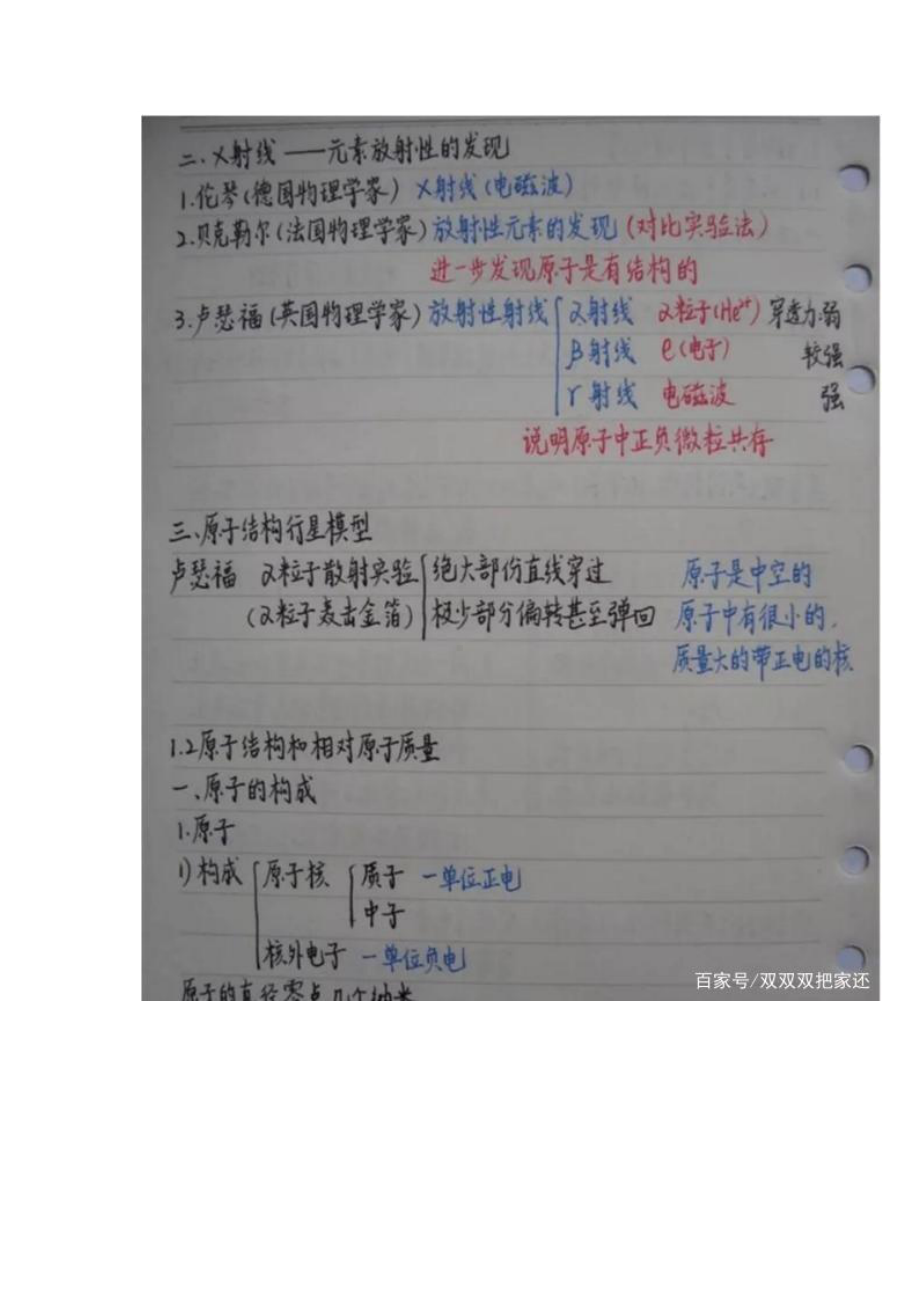 二、X射线——元素放射性的发现
1.伦琴(德国物理学家) X射线(电磁波)
2.贝克勒尔(法国物理学家)放射性元素的发现(对比实验法)
进一步发现原子是有结构的
3.卢瑟福(英国物理学家)放射性射线 α射线 α粒子(He²⁺) 穿透力:弱
β射线 e(电子) 较强
γ射线 电磁波 强
说明原子中正负微粒共存
三、原子结构行星模型
卢瑟福 α粒子散射实验 绝大部份直线穿过 原子是中空的
(α粒子轰击金箔) 极少部分偏转甚至弹回 原子中有很小的,
质量大的带正电的核
1.2原子结构和相对原子质量
一、原子的构成
1.原子
1)构成 原子核 质子 一单位正电
中子
核外电子 一单位负电
原子的直径零点几个纳米
百家号/双双双把家还